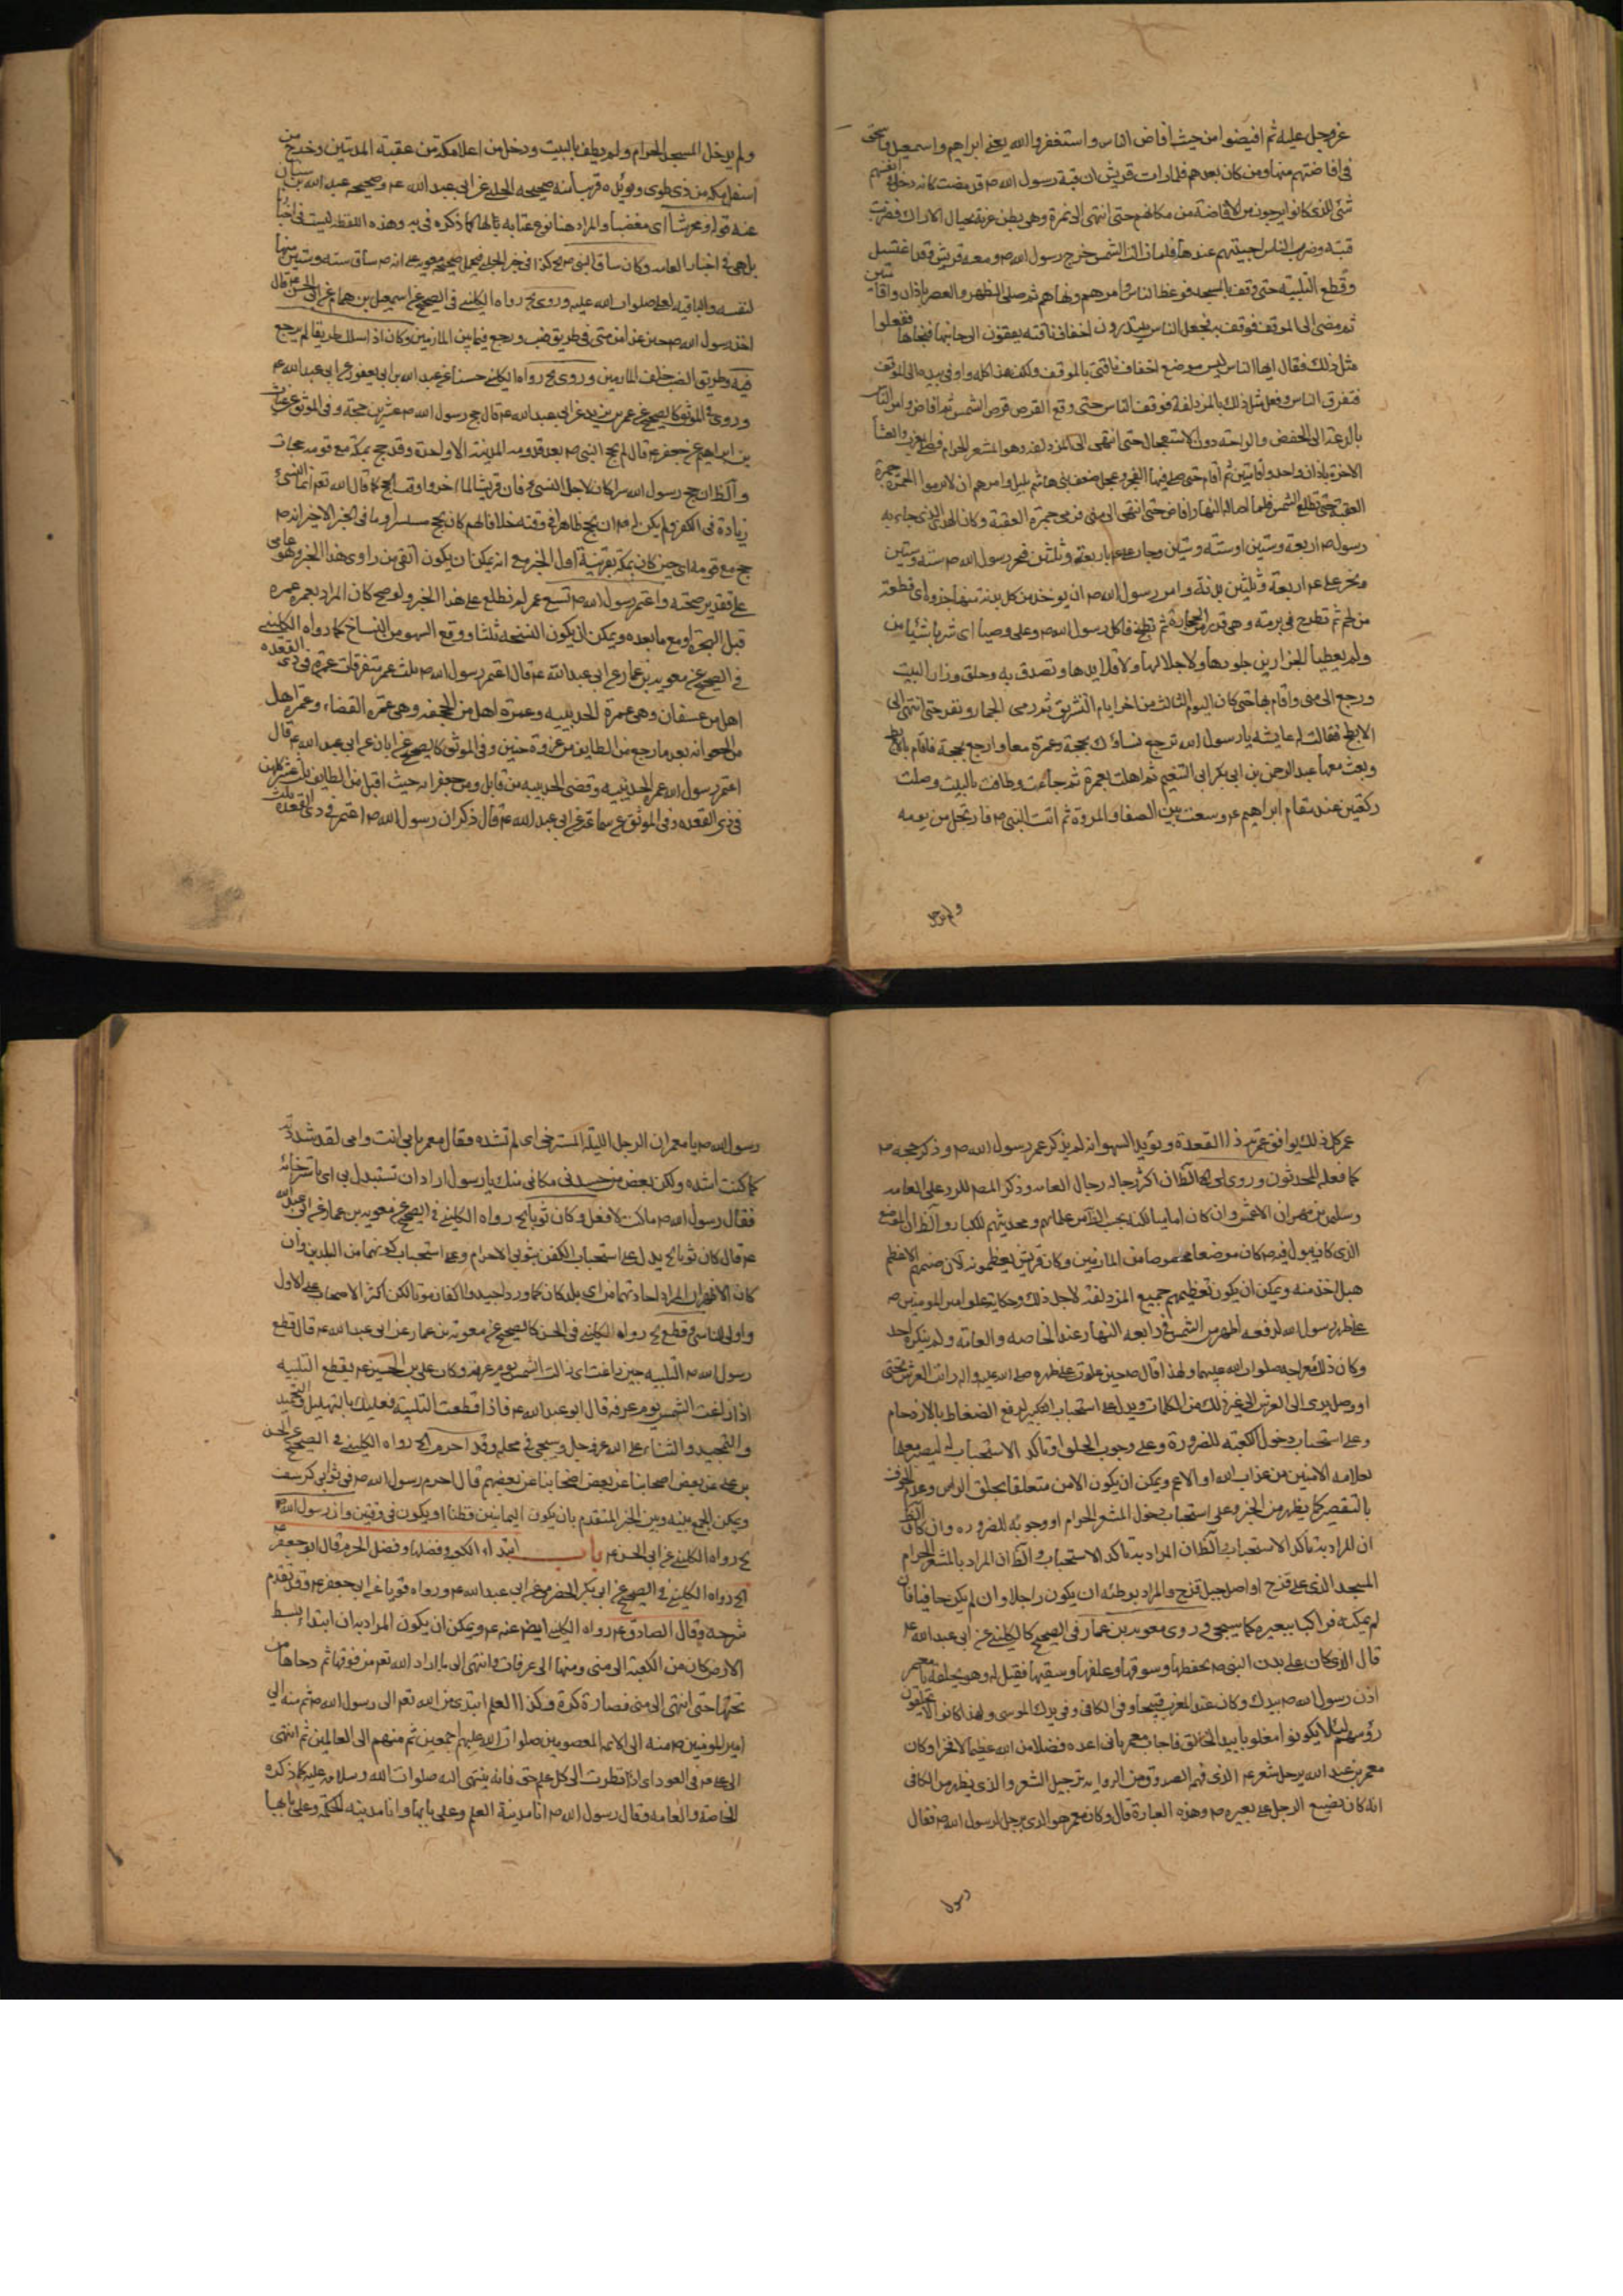 عزوجل عليه ثم افيضوا من حيث افاض الناس واستغفروا الله يعنى ابراهيم واسمعيل واسحق
فى افاضتهم منها ومن كان بعدهم فلما رات قريش ان قبة رسول الله ص قد مضت كانه دخل فى انفسهم
شئ للذى كانوا يرجون من الافاضة من مكانهم حتى انتهى الى نمرة وهى بطن عرنة بحيال الاراك فضربت
قبته وضرب الناس اخبيتهم عندها فلما زالت الشمس خرج رسول الله ص ومعه قريش وقد اغتسل
وقطع التلبية حتى وقف بالمسجد فوعظ الناس وامرهم ونهاهم ثم صلى الظهر والعصر باذان واقامتين
ثم مضى الى الموقف فوقف به فجعل الناس يبتدرون اخفاف ناقته يقفون الى جانبها فنحاها ففعلوا
مثل ذلك فقال ايها الناس ليس موضع اخفاف ناقتى بالموقف ولكن هذا كله واومى بيده الى الموقف
فتفرق الناس وفعل مثل ذلك بالمزدلفة فوقف الناس حتى وقع القرص قرص الشمس ثم افاض وامر الناس
بالدعة الى المزدلفة وهو المشعر الحرام فصلى المغرب والعشاء
الاخرة باذان واحد واقامتين ثم اقام حتى صلى فيها الفجر وعجل ضعفاء بنى هاشم بليل وامرهم ان لا يرموا الجمرة جمرة
العقبة حتى تطلع الشمس فلما اضاء له النهار افاض حتى انتهى الى منى فرمى جمرة العقبة وكان الهدى الذى جاء به
رسول الله ص اربعة وستين او ستة وستين وجاء على ع باربعة وثلثين فنحر رسول الله ص ستة وستين
ونحر على ع اربعة وثلثين بدنة وامر رسول الله ص ان يوخذ من كل بدنة منها جذوة اى قطعة
من لحم ثم تطرح فى برمة وهى قدر من الحجارة ثم تطبخ فاكل رسول الله ص وعلى وحسيا اى شربا شيئا من
ولم يعطيا الجزارين جلودها ولا جلالها ولا قلايدها وتصدق به وحلق وزار البيت
ورجع الى منى واقام بها حتى كان اليوم الثالث من اخر ايام التشريق ثم رمى الجمار ونفر حتى انتهى الى
الابطح فقالت له عايشه يا رسول الله ترجع نساؤك بحجة وعمرة معا وارجع بحجة فاقام بالابطح
وبعث معها عبد الرحمن بن ابى بكر الى التنعيم فاهلت بعمرة ثم جاءت وطافت بالبيت وصلت
ركعتين عند مقام ابراهيم ع وسعت بين الصفا والمروة ثم اتت النبى ص فارتحل من يومه
ولم يدخل
ولم يدخل المسجد الحرام ولم يطف بالبيت ودخل من اعلا مكة من عقبة المدنيين وخرج من
اسفل مكة من ذى طوى ويؤيده قريبا منه صحيحه الحلبى عن ابى عبد الله ع وصحيحه عبد الله بن سنان
عنه قوله ومحرشا اى مغضبا والمراد هنا نوع عتابه بالها كما ذكره فى يه وهذه اللفظة ليست فى اخبارنا
بل هى فى اخبار العامه وكان ساق النبى ص
لنفسه والباقيه لعلى صلوات الله عليه وروى رواه الكلينى فى الصحيح عن اسمعيل بن همام عن ابى الحسن ع قال
اخذ رسول الله ص حين غدا من منى فى طريق ضب ورجع فيما بين المازمين وكان اذا سلك طريقا لم يرجع
فيه وطريق الضب خلف المازمين وروى رواه الكلينى حسنا عن عبد الله بن ابى يعفور عن ابى عبد الله ع
وروى فى الموثق كالصحيح عن عمر بن يزيد عن ابى عبد الله ع قال حج رسول الله ص عشرين حجة وفى الموثق عن غياث
بن ابراهيم عن جعفر ع قال لم يحج النبى ص بعد قدومه المدينة الا واحدة وقد حج بمكة مع قومه حجات
والظ ان حج رسول الله سرا كان لاجل النسى فان قريشا لما اخروا وقت الحج كما قال الله تعم انما النسئ
زيادة فى الكفر ولم يكن له ص ان يحج ظاهرا فى وقته خلافا لهم كان يحج مستسرا وما فى الخبر الاخير انه ص
حج مع قومه اى حين كان بمكة بقرينة اول الخبر مع انه يمكن ان يكون اتقى من راوى هذا الخبر وهو عامى
على تقدير صحته واعتمر رسول الله ص تسع عمر لم نطلع على هذا الخبر ولو صح كان المراد بعمره عمره
قبل الهجرة او مع ما بعده ويمكن ان يكون النسخه ثلثا ووقع السهو من النساخ كما رواه الكلينى
فى الصحيح عن معويه بن عمار عن ابى عبد الله ع قال اعتمر رسول الله ص ثلث عمر متفرقات عمرة فى ذى القعده
اهل من عسفان وهى عمرة الحديبيه وعمرة اهل من الجحفه وهى عمرة القضاء وعمرة اهل
من الجعرانه بعد ما رجع من الطايف من غزوة حنين وفى الموثق كالصحيح عن ابان عن ابى عبد الله ع قال
اعتمر رسول الله عمرة الحديبيه وقضى الحديبيه من قابل ومن جعرانه حيث اقبل من الطايف ثلث عمر كلهن
فى ذى القعده وفى الموثق عن سماعه عن ابى عبد الله ع قال ذكر ان رسول الله ص اعتمر فى ذى القعده ثلث
عمر كل ذلك يوافق عمرته ذا القعدة ويؤيد السهو انه لم يذكر عمر رسول الله ص وذكر حجه ص
كما فعله المحدثون وروى الظ ان اكثر رجاله رجال العامه وذكر المص للرد على العامه
وسليمن بن مهران الاعمش وان كان اماميا لكنه بحسب الظ من علمائهم ومحدثيهم الكبار والظ ان الموضع
الذى كان يبول فيه ص كان موضعا مخصوصا من المازمين وكان قريش يعظمونه لان صنمهم الاعظم
هبل اخذ منه ويمكن ان يكون تعظيمهم جميع المزدلفة لاجل ذلك وحكاية علو امير المومنين ص
على ظهر رسول الله ص اظهر من الشمس فى رابعه النهار عند الخاصه والعامة ولم ينكره احد
وكان ذلك معراجه صلوات الله عليهما ولهذا قال ص حين علوت على ظهره صلى الله عليه واله رايت العرش تحتى
او وصل يدى الى العرش الى غير ذلك من الكلمات ويدل على استحباب التكبير لدفع الضغاط بالازدحام
وعلى استحباب دخول الكعبه للضرورة وعلى وجوب الحلق او تاكد الاستحباب له ليصير معلما
بعلامه الامنين من عذاب الله او الاعم ويمكن ان يكون الامن متعلقا بحلق الراس وعدم الخوف
بالتقصير كما يظهر من الخبر وعلى استحباب دخول المشعر الحرام او وجوبه للضروره وان كان الظ
ان المراد به تاكد الاستحباب والظ ان المراد بالمشعر الحرام
المسجد الذى على قزح او اصل جبل قزح والمراد بوطئه ان يكون راجلا وان لم يكن حافيا فان
لم يمكنه فراكبا ببعيره كما سيجئ وروى معويه بن عمار فى الصحيح كالكلينى عن ابى عبد الله ع
قال الذى كان على بدن النبى ص يحفظها وسوقها وعلفها وسقيها فقيل له وهو يحلقه يا معمر
اذن رسول الله ص بيدك وكان عند العرب قبيحا وفى الكافى وفى يدك الموسى ولهذا كانوا لا يحلقون
رؤسهم لئلا يكونوا مغلوبا بيد الحلاق فاجاب معمر بانى اعده فضلا من الله عظيما لا فخرا وكان
معمر بن عبد الله يرجل شعره ع الذى فهم الصدوق من الروايه ترجيل الشعر والذى يظهر من الكافى
انه كان يضع الرحل على بعيره ص وهذه العبارة قال وكان معمر هو الذى يرحل لرسول الله ص فقال
رسول
رسول الله ص يا معمر ان الرحل الليلة المسترخى اى لم تشده فقال معمر بابى انت وامى لقد شددته
كما كنت اشده ولكن بعض من حسدنى مكانى منك يا رسول الله اراد ان تستبدل بى اى باسترخائه
فقال رسول الله ص ما كنت لافعل وكان ثوباه رواه الكلينى فى الصحيح عن معويه بن عمار عن ابى عبد الله
ع قال كان ثوباه يدل على استحباب الكفن بثوبى الاحرام وعلى استحباب كونهما من البلدين وان
كان الاظهر ان المراد اجادتهما من اى بلد كان كما ورد اجيدوا اكفان موتاكم لكن اكثر الاصحاب على الاول
واولى للتاسى وقطع رواه الكلينى فى الحسن كالصحيح عن معويه بن عمار عن ابى عبد الله ع قال قطع
رسول الله ص التلبيه حين زاغت اى زالت الشمس يوم عرفه وكان على بن الحسين ع يقطع التلبيه
اذا زاغت الشمس يوم عرفه قال ابو عبد الله ع فاذا قطعت التلبية فعليك بالتهليل والتحميد
والتمجيد والثناء على الله عزوجل وسيجئ فى محله وقد احرم رواه الكلينى فى الصحيح عن الحسن
بن على عن بعض اصحابنا عن بعضهم قال احرم رسول الله ص فى ثوبى كرسف
ويمكن الجمع بينه وبين الخبر المتقدم بان يكون اليمانيين قطنا او يكون فى وقتين وان رسول الله
رواه الكلينى عن ابى الحسن ع باب ابتداء الكعبه وفضلها وفضل الحرم قال ابو جعفر ع
رواه الكلينى فى الصحيح عن ابى بكر الحضرمى عن ابى عبد الله ع ورواه قويا عن ابى جعفر ع وقد تقدم
شرحه وقال الصادق ع رواه الكلينى ايضا عنه ع ويمكن ان يكون المراد به ان ابتداء بسط
الارض كان من الكعبة الى منى ومنها الى عرفات وانتهى الى ما اراد الله تعم من فوقها ثم دحاها من
تحتها حتى انتهى الى منى فصارة كرة وكذا العلم ابتدئ من الله تعم الى رسول الله ص ثم منه الى
امير المومنين ص منه الى الائمه المعصومين صلوات الله عليهم اجمعين ثم منهم الى العالمين ثم انتهى
الى على ع فى العود اى اذا نظرت الى كل علم حتى فانه ينتهى اليه صلوات الله وسلامه عليه كما ذكره
الخاصة والعامه وقال رسول الله ص انا مدينة العلم وعلى بابها وانا مدينه الحكمة وعلى بابها